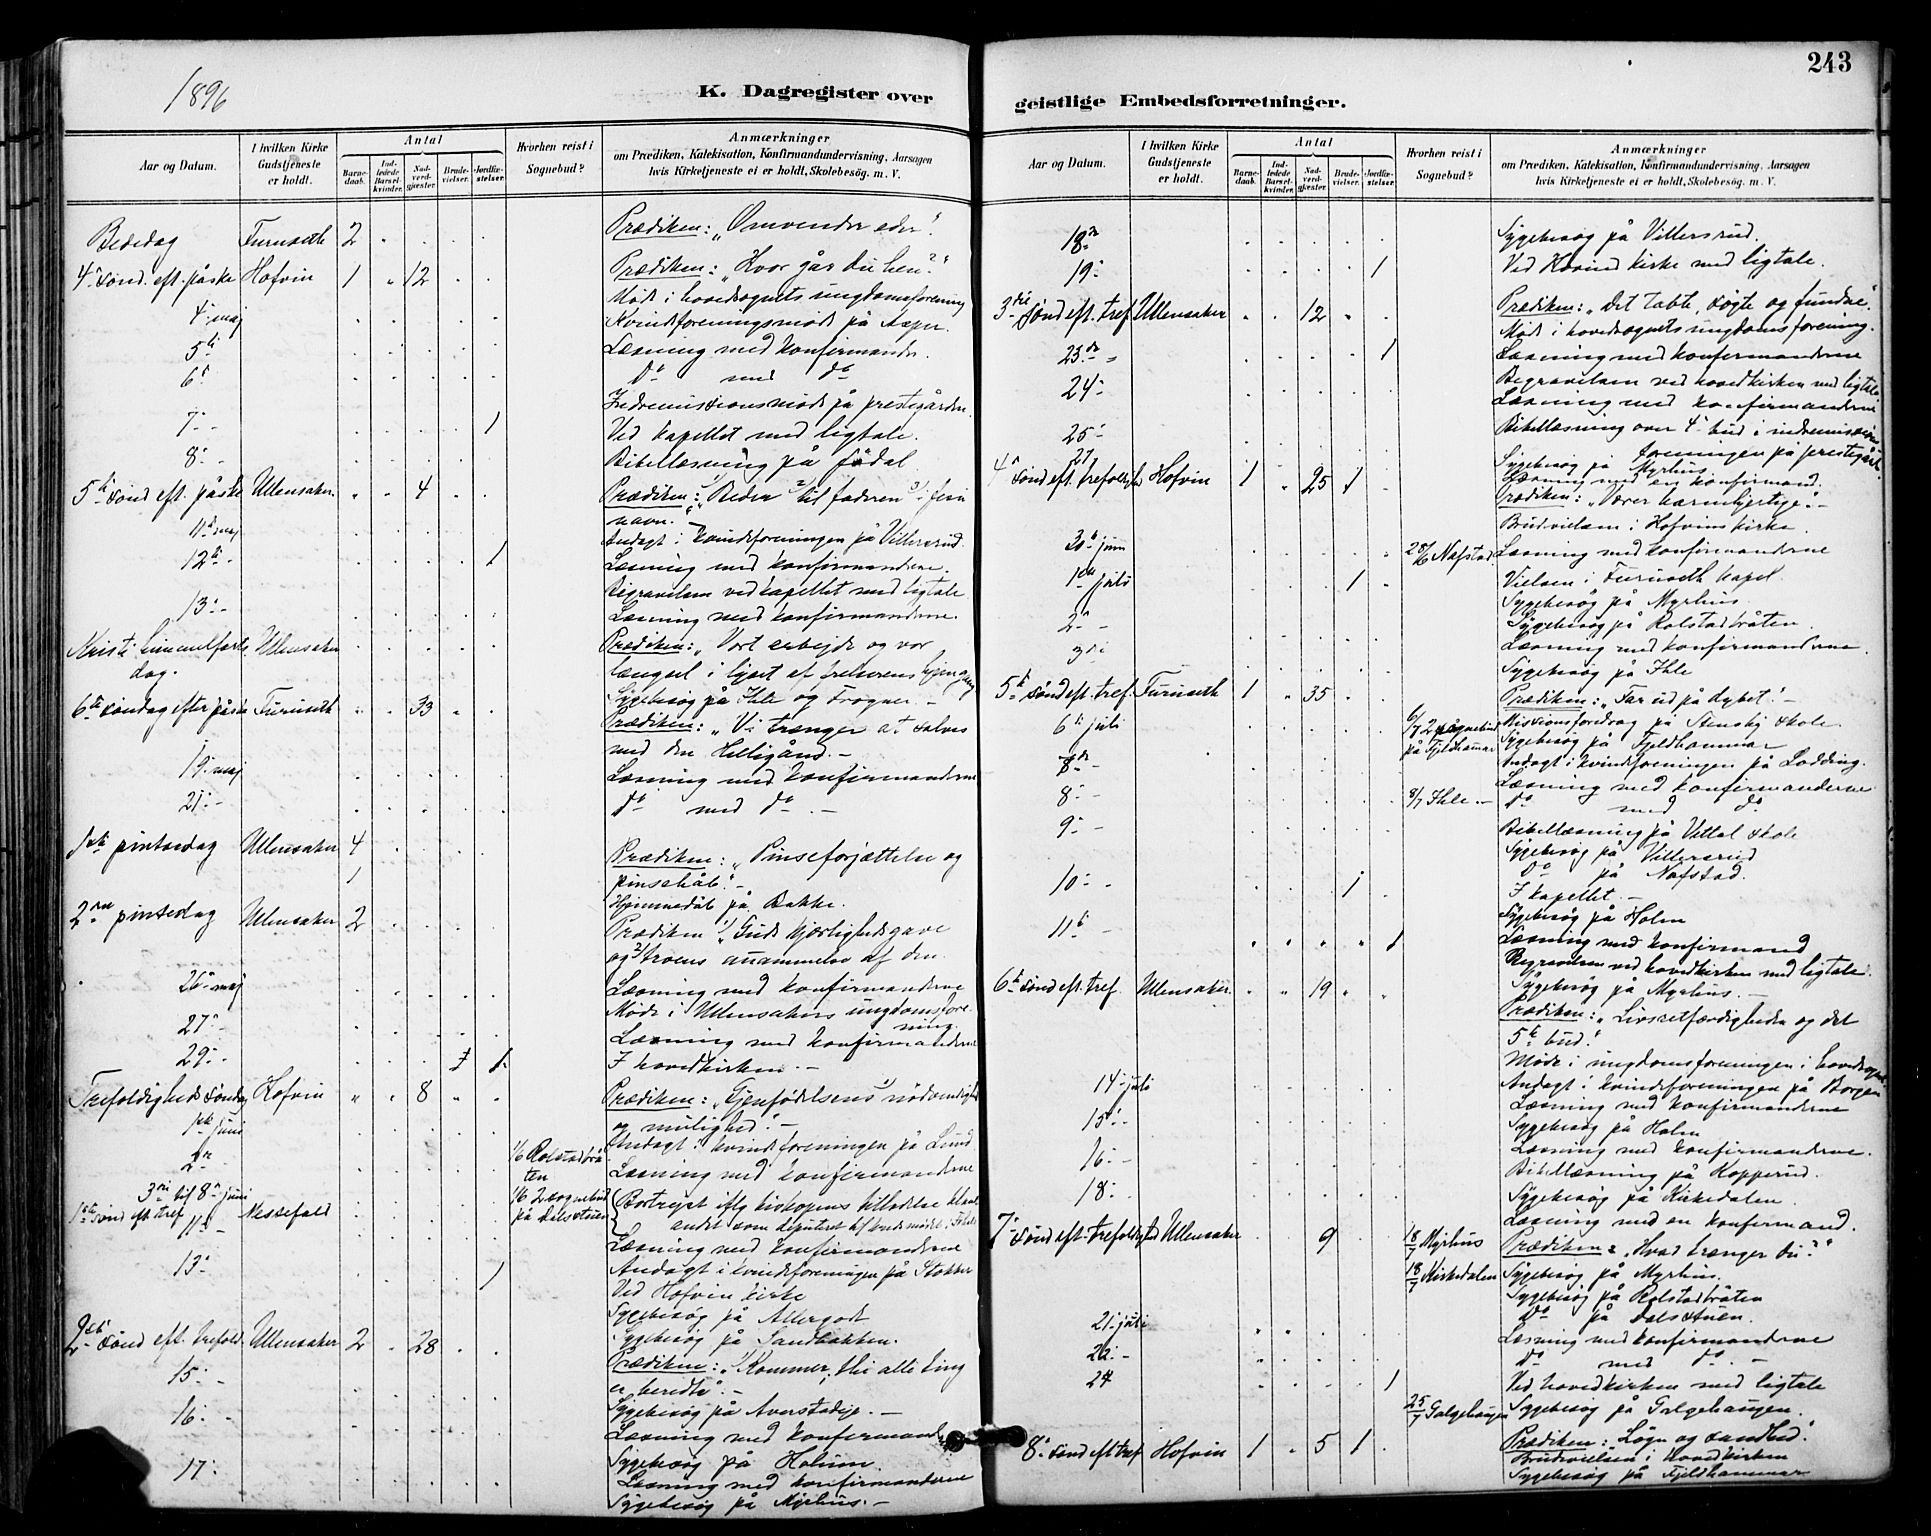 1896
K. Dagregister over
Antal
Aar og Datum.
I hvilken Kirke Gudstjeneste er holdt.
Barnedaab.
Indledede Barselkvinder.
Nadverdgjæster.
Brudevielser.
Jordfæstelser.
Hvorhen reist i Sognebud?
Anmærkninger
om Prædiken, Katekisation, Konfirmandundervisning, Aarsagen
hvis Kirketjeneste ei er holdt, Skolebesøg. m. V.
Bededag Furuseth 2 Prædiken: „Omvender eder".
4 sønd. eft. påske Hofvin 1 " 12 Prædiken: „Hvor går du hen?"
Møde i hovedsognets ungdomsforening
4 maj Kvindeforeningsmøde på
5te Læsning med konfirmander.
6te do med do
Indremissionsmøde på prestegården.
7 1 Ved kapellet med ligtale.
8 Bibellæsning på
5te sønd eft. påske Ullensaker " " 4 Prædiken: 1) „Beder 2) til faderen 3) i
navn.
11te maj Andagt i kvindeforeningen på Villersrud.
12te 1 Læsning med konfirmanderne.
Begravelsen ved kapellet med ligtale
13 Læsning med konfirmanderne.
Kristi himmelfarts Ullensaker Prædiken: „Vort arbejde og vor
dag. længsel i lyset af frelserens hjemgang
6te søndag efter påske Furuseth " " 33 Sygebesøg på Ihle og Frogner.
Prædiken: „Vi trænger at salves
med den Helligånd.
19 maj Læsning med konfirmanderne
21 do med do
1ste pintsedag Ullensaker 4 Prædiken: „Pinseforjættelse og
1 pinsehåb".
Hjemmedåb på Bakke.
2den pintsedag Ullensaker 2 Prædiken 1) „Guds kjærlighedsgave
og 2) troens annammelse af den.
26 maj Læsning med konfirmanderne
Møde i Ullensakers ungdomsfore-
ning
27 Læsning med konfirmanderne
29 1 1 I hovedkirken.
Trefoldigheds søndag Hofvin " " 8 " Prædiken: „Gjenfødelsens nødvendighed
og mulighed".
1ste juni Andagt i kvindeforeningen på Lund
2den 1/6 Rolstadbrå- Læsning med konfirmanderne
ten
3die til 8de juni 1/6 2 sognebud Bortreist iflg biskopens tilladelse blandt
1ste sønd eft tref Messefald på Dalstuen andet som deputeret til
11te Læsning med konfirmanderne
13 1 Andagt i kvindeforeningen på Stokker
Ved Hofvin kirke
Sygebesøg på Allergodt
Sygebesøg på Sandbakken.
2den sønd eft. trefold. Ullensaker 2 28 Prædiken: „Kommer, thi alle ting
15 er beredte".
Sygebesøg på Averstadeje.
16 Læsning med konfirmand
17 Sygebesøg på Holum
Læsning med konfirmanderne
Sygebesøg på Myrhus.
243
geistlige Embedsforretninger.
Antal
Aar og Datum.
I hvilken Kirke Gudstjeneste er holdt.
Barnedaab.
Indledede Barselkvinder.
Nadverdgjæster.
Brudevielser.
Jordfæstelser.
Hvorhen reist i Sognebud?
Anmærkninger
om Prædiken, Katekisation, Konfirmandundervisning, Aarsagen
hvis Kirketjeneste ei er holdt, Skolebesøg m. V.
18de Sygebesøg på Villersrud.
19 1 Ved Hovind kirke med ligtale.
3die sønd eft. tref. Ullensaker " " 12 " Prædiken: „Det tabte, søgte og fundne".
Møde i hovedsognets ungdomsforening.
23de 1 Læsning med konfirmanderne
24 Begravelsen ved hovedkirken med ligtale.
Læsning med konfirmanderne
25 Bibellæsning over 4 bud i indremissions-
foreningen på prestegård
27 Sygebesøg på Myrhus
4 sønd eft. trefoldigh Hofvin 1 " 25 1 Læsning med en konfirmand.
Prædiken: „Værer barmhjertige".
Brudevielsen i Hofvins kirke.
30te juni 28/6 Nafstad Læsning med konfirmanderne
1ste juli 1 Vielsen i Furuseth kapel.
Sygebesøg på Myrhus
2den Sygebesøg på Rolstadbråten.
3die Læsning med konfirmanderne.
Sygebesøg på Ihle
5te sønd eft. tref. Furuseth 1 " 35 Prædiken: „Far ud på dybet!"
6te juli 6/7 2 sognebud Missionsforedrag på Stensby skole
på Fjeldhammar Sygebesøg på Fjeldhammar
Andagt i kvindeforeningen på Lodding.
8de Læsning med konfirmanderne
8 8/7 Ihle. do med do
9 Bibellæsning på Vettal skole
Sygebesøg på Villersrud
do på Nafstad.
10 1 I kapellet
Sygebesøg på Holm
11te 1 Læsning med konfirmand
Begravelsen ved hovedkirken med ligtale.
6te sønd eft. tref. Ullensaker " " 19 " " Sygebesøg på Myrhus.
Prædiken: „Livsretfærdigheden og det
5te bud".
Møde i ungdomsforeningen i hovedsognet
14 juli Andagt i kvindeforeningen på Borgen
Læsning med konfirmanderne
15 Sygebesøg på Holm
16 Læsning med konfirmanderne.
Bibellæsning på Kopperud.
18 Sygebesøg på Kirkedalen.
Læsning med en konfirmand.
7 sønd eft. trefoldighed Ullensaker 9 18/7 Myrhus Prædiken: „Hvad trænger du?"
18/7 Kirkedalen Sygebesøg på Myrhus.
Sygebesøg på Rolstadbråten
do på Dalstuen.
21 juli Læsning med konfirmanderne
22 do med do.
24 1 Ved hovedkirken med ligtale
25/7 Galgehaugen Sygebesøg på Galgehaugen.
8 sønd eft tref Hofvin 1 " 5 1 Prædiken: „Løgn og sandhed".
Brudevielsen i Hovedkirken
Sygebesøg på Fjeldhammar